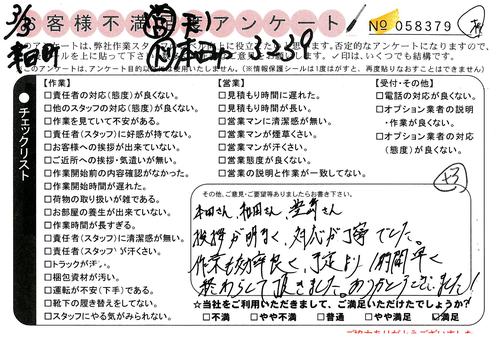 お客様不満足度アンケート
No 058379
このアンケートは、弊社作業スタッフ
シールを上に貼って下さ
このアンケートは、アンケート目的以外には使用いたしません。(※情報保護シールは1度はがすと、再度貼りなおすことはできません)
●チェックリスト
【作業】
□責任者の対応(態度)が良くない。
□他のスタッフの対応(態度)が良くない。
□作業を見ていて不安がある。
□責任者(スタッフ)に好感が持てない。
□お客様への挨拶が出来ていない。
□ご近所への挨拶・気遣いが無い。
□作業開始前の内容確認がなかった。
□作業開始時間が遅れた。
□荷物の取り扱いが雑である。
□お部屋の養生が出来ていない。
□作業時間が長すぎる。
□責任者(スタッフ)に清潔感が無い。
□責任者(スタッフ)が汗くさい。
□トラックが汚い。
□梱包資材が汚い。
□運転が不安(下手)である。
□靴下の履き替えをしてない。
□スタッフにやる気がみられない。
【営業】
□見積もり時間に遅れた。
□見積もり時間が長い。
□営業マンに清潔感が無い。
□営業マンが煙草くさい。
□営業マンが汗くさい。
□営業態度が良くない。
□営業の説明と作業が一致してない。
【受付・その他】
□電話の対応が良くない。
□オプション業者の説明
・作業が良くない。
□オプション業者の対応
(態度)が良くない。
その他、ご意見・ご要望等ありましたらお書き下さい。
本田さん 和田さん
挨拶が明るく、対応が丁寧でした。
作業も効率良く、予定より1時間早く
終わらして頂きました。ありがとうございました!
☆当社をご利用いただきまして、ご満足いただけたでしょうか?
□不満 □やや不満 □普通 □やや満足 ☑満足
ご協力ありがとうございました